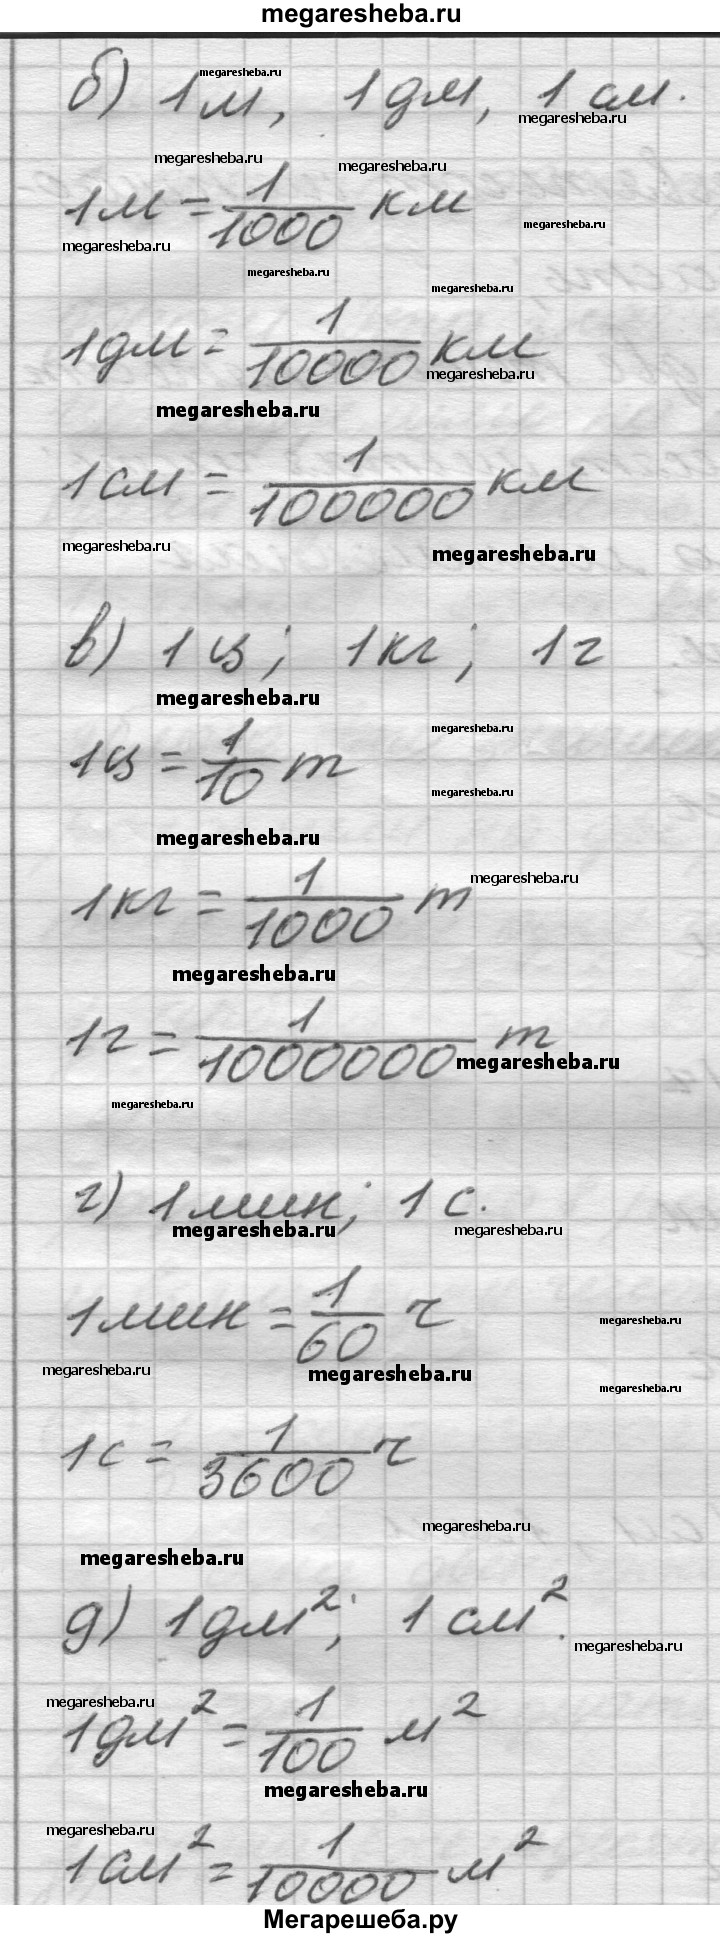 megaresheba.ru
б) 1 м, 1 дм, 1 см.
megaresheba.ru
megaresheba.ru
megaresheba.ru
megaresheba.ru
1 м = 1/1000 км
megaresheba.ru
megaresheba.ru
megaresheba.ru
megaresheba.ru
1 дм = 1/10000 км
megaresheba.ru
megaresheba.ru
1 см = 1/100000 км
megaresheba.ru
megaresheba.ru
в) 1 ц; 1 кг; 1 г
megaresheba.ru
megaresheba.ru
1 ц = 1/10 т
megaresheba.ru
megaresheba.ru
megaresheba.ru
1 кг = 1/1000 т
megaresheba.ru
1 г = 1/1000000 т
megaresheba.ru
megaresheba.ru
г) 1 мин; 1 с.
megaresheba.ru
megaresheba.ru
1 мин = 1/60 ч
megaresheba.ru
megaresheba.ru
megaresheba.ru
megaresheba.ru
1 с = 1/3600 ч
megaresheba.ru
megaresheba.ru
д) 1 дм²; 1 см².
megaresheba.ru
megaresheba.ru
1 дм² = 1/100 м²
megaresheba.ru
megaresheba.ru
1 см² = 1/10000 м²
Мегарешеба.ру